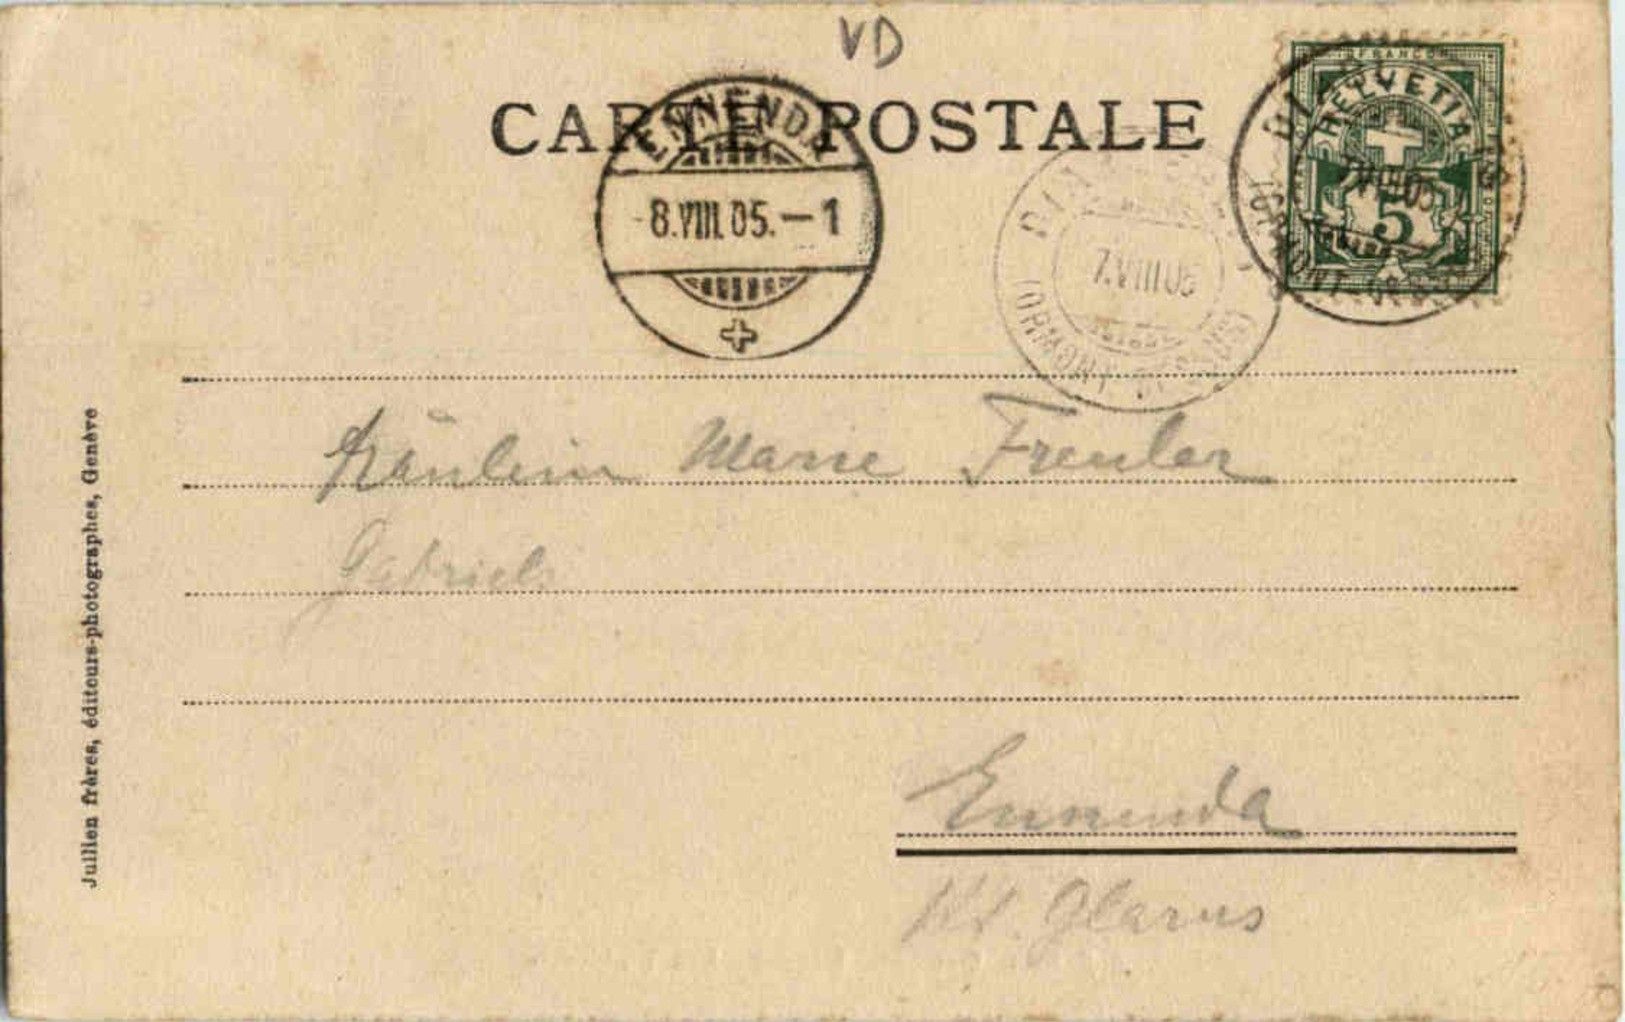 VD
CARTE POSTALE
ENNENDA
8.VIII.05.–1
7.VIII 05
(ORMONT DESSUS)
FRANCO
HELVETIA
7.VIII 05
5
(ORMONT DESSUS)
Fräulein Marie Freuler
Gabriels
Ennenda
Kt. Glarus
Jullien frères, éditeurs-photographes, Genève